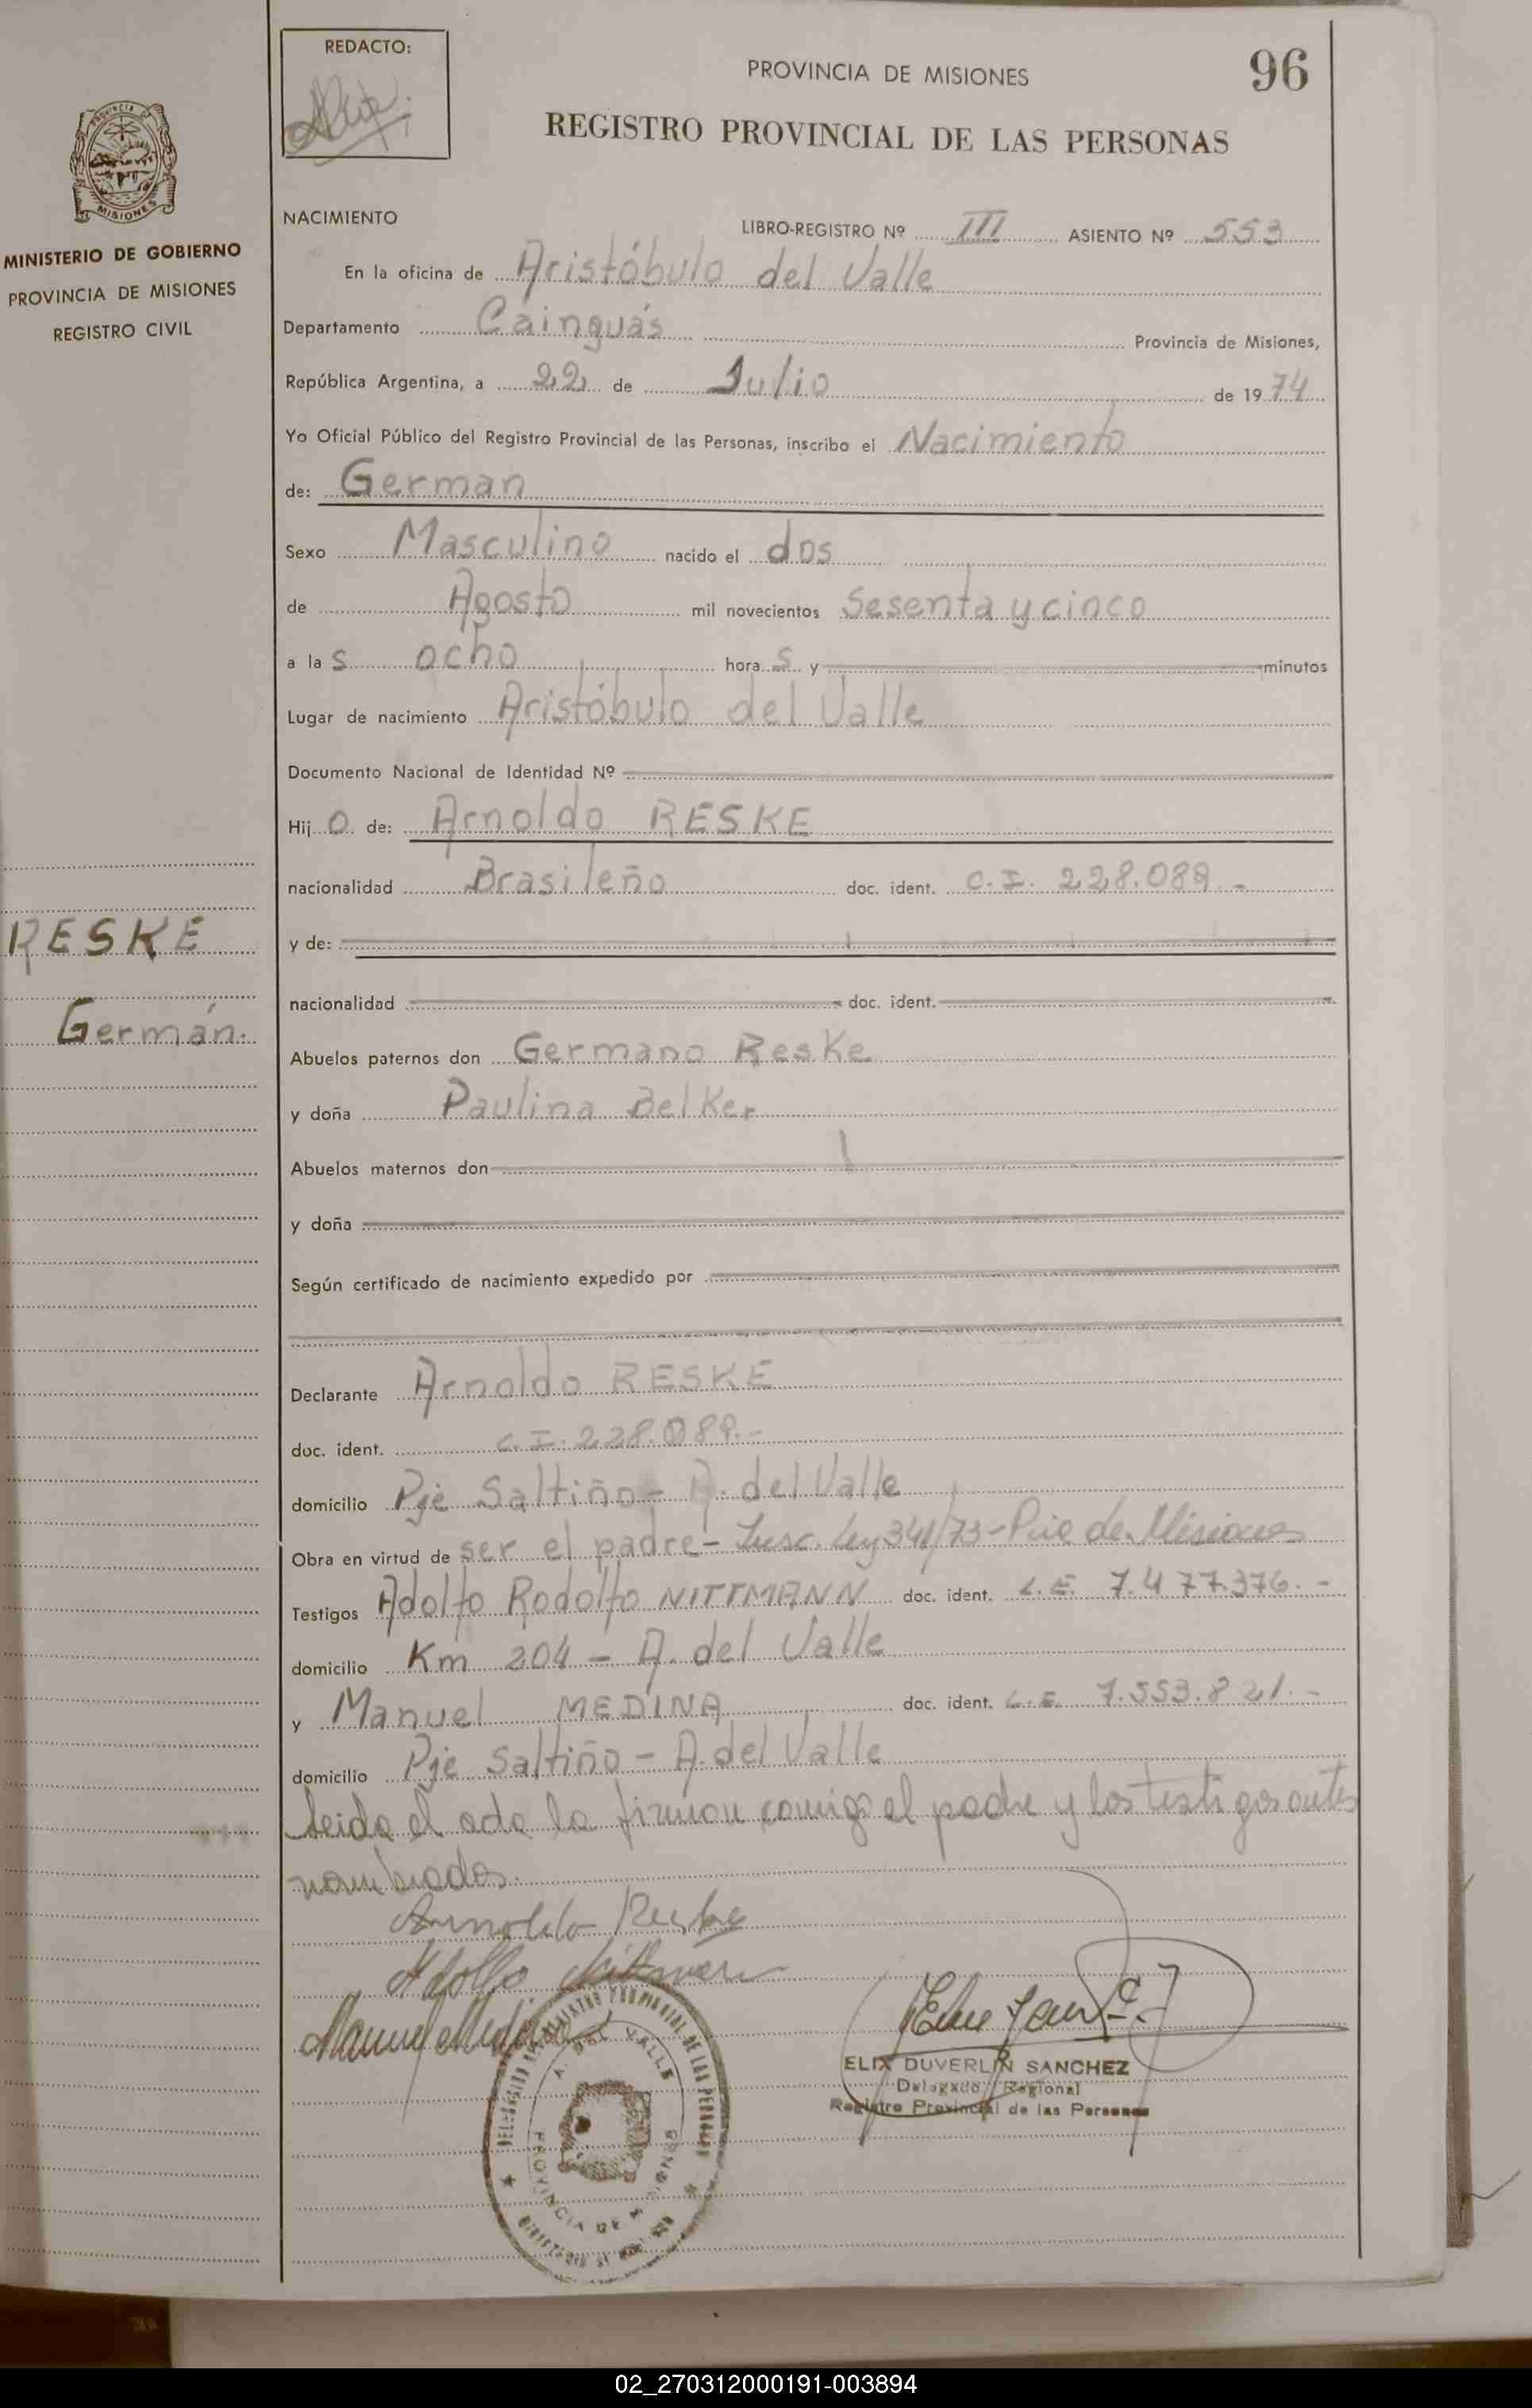 REDACTO:
PROVINCIA DE MISIONES
96
REGISTRO PROVINCIAL DE LAS PERSONAS
PROVINCIA
MISIONES
MINISTERIO DE GOBIERNO
PROVINCIA DE MISIONES
REGISTRO CIVIL
NACIMIENTO
LIBRO-REGISTRO Nº III ASIENTO Nº 553
En la oficina de Aristóbulo del Valle
Departamento Cainguás Provincia de Misiones,
República Argentina, a 22 de Julio de 1974
Yo Oficial Público del Registro Provincial de las Personas, inscribo el Nacimiento
de: German
Sexo Masculino nacido el dos
de Agosto mil novecientos Sesenta y cinco
a las ocho horas y minutos
Lugar de nacimiento Aristóbulo del Valle
Documento Nacional de Identidad Nº
Hijo de: Arnoldo RESKE
nacionalidad Brasileño doc. ident. C.I. 228.089.-
y de:
RESKE
nacionalidad doc. ident.
Germán.
Abuelos paternos don Germano Reske
y doña Paulina Belker
Abuelos maternos don
y doña
Según certificado de nacimiento expedido por
Declarante Arnoldo RESKE
doc. ident. C.I. 228.089.-
domicilio Pje Saltiño - A. del Valle
Obra en virtud de ser el padre - Insc. Ley 341/73 - Pcia de Misiones
Testigos Adolfo Rodolfo NITTMANN doc. ident. L.E. 7.477.376.-
domicilio Km 204 - A. del Valle
y Manuel MEDINA doc. ident. L.E. 7.553.821.-
domicilio Pje Saltiño - A. del Valle
Leida el acta la firman comigo el padre y los testigos antes
nombrados.
Arnoldo Reske
Adolfo Nittmann
Manuel Medina
A. DEL VALLE
PROVINCIA DE MISIONES
ELIX DUVERLIN SANCHEZ
Delegado Regional
Registro Provincial de las Personas
02_270312000191-003894